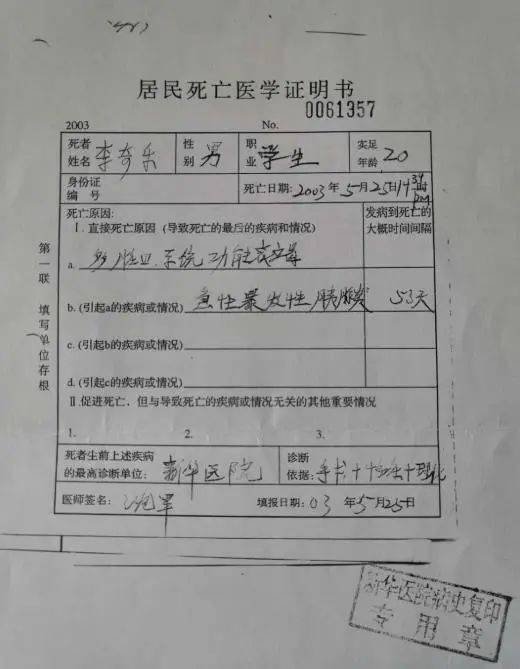 居民死亡医学证明书
0061357
2003 No.
死者姓名 李奇乐 性别 男 职业 学生 实足年龄 20
身份证编号 死亡日期:2003年5月25日14 39 PM
死亡原因: 发病到死亡的大概时间间隔
I.直接死亡原因(导致死亡的最后的疾病和情况)
a. 多脏器系统功能衰竭
b.(引起a的疾病或情况) 急性暴发性胰腺炎 53天
c.(引起b的疾病或情况)
d.(引起c的疾病或情况)
II.促进死亡,但与导致死亡的疾病或情况无关的其他重要情况
1. 2. 3.
死者生前上述疾病的最高诊断单位: 新华医院 诊断依据: 手术+
医师签名: 填报日期:03年5月25日
第一联 填写单位存根
新华医院病史复印
专用章